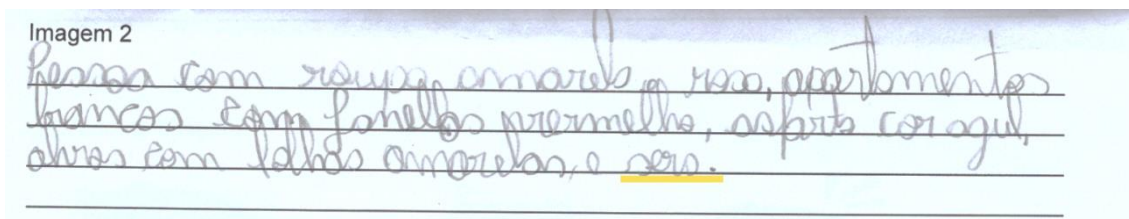 Imagem 2
Pessoa com roupa amarelo, e rosa, apartamentos
brancos com janellas vrermelho, asfarto cor agul,
alvres com folhas amarelas, e sero.